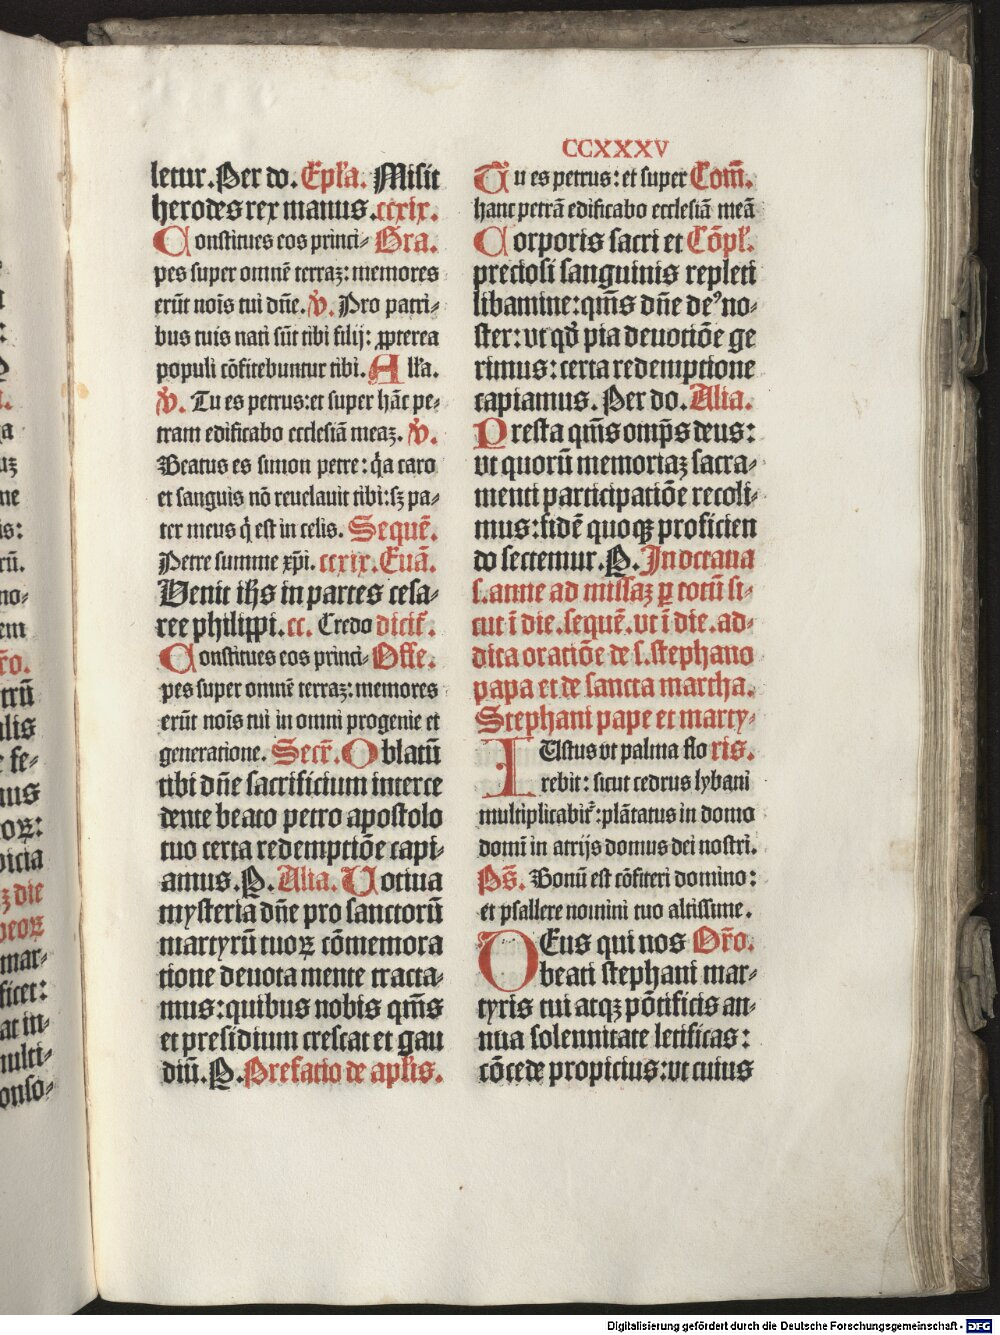 CCXXXV
letur. Per do. Epl'a. Misit
herodes rex manus. ccxix.
Constitues eos princi- Gra.
pes super omnē terraꝫ: memores
erūt nois̄ tui dn̄e. v̓. Pro patri-
bus tuis nati sūt tibi filij: ꝓpterea
populi cōfitebuntur tibi. All'a.
v̓. Tu es petrus: et super hāc pe-
tram edificabo ecclesiā meaꝫ. v̓.
Beatus es simon petre: q̄a caro
et sanguis nō reuelauit tibi: sꝫ pa-
ter meus q̄ est in celis. Sequē.
Petre summe xp̄i. ccxix. Euā.
Venit ih̄s in partes cesa-
ree philippi. cc. Credo dicit̄.
Constitues eos princi- Offe.
pes super omnē terraꝫ: memores
erūt nois̄ tui in omni progenie et
generatione. Secr̄. Oblatū
tibi dn̄e sacrificium interce
dente beato petro apostolo
tuo certa redemptiōe capi-
amus. P. Alia. Uotiua
mysteria dn̄e pro sanctorū
martyrū tuoꝝ cōmemora
tione deuota mente tracta-
mus: quibus nobis qm̄s
et presidium crescat et gau
diū. P. Prefatio de apl'is.
Tu es petrus: et super Com̄.
hanc petrā edificabo ecclesiā meā
Corporis sacri et Cōpl'.
preciosi sanguinis repleti
libamine: qm̄s dn̄e deꝰ no-
ster: vt qd̄ pia deuotiōe ge
rimus: certa redemptione
capiamus. Per do. Alia.
Presta qm̄s omp̄s deus:
vt quorū memoriaꝫ sacra-
menti participatiōe recoli-
mus: fidē quoqꝫ proficien
do sectemur. P. In octaua
s. anne ad missaꝫ ꝑ totū si-
cut ī die. sequē. vt ī die. ad-
dita oratiōe de s. stephano
papa et de sancta martha.
Stephani pape et marty-
IUstus vt palma flo ris.
rebit: sicut cedrus lybani
multiplicabit̄: plātatus in domo
domī in atrijs domus dei nostri.
Ps̄. Bonū est cōfiteri domino:
et psallere nomini tuo altissime.
DEus qui nos Or̄o.
beati stephani mar-
tyris tui atqꝫ pōtificis an-
nua solennitate letificas:
cōcede propicius: vt cuius
Digitalisierung gefördert durch die Deutsche Forschungsgemeinschaft - DFG